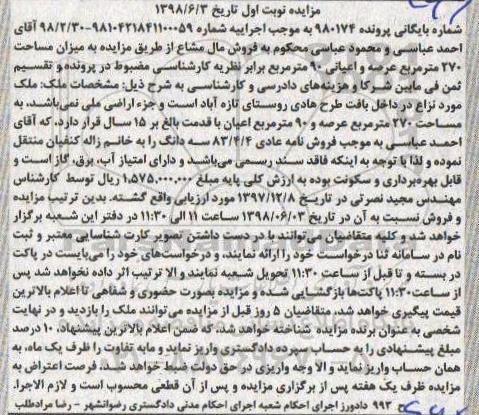 مزایده نوبت اول تاریخ ۱۳۹۸/۶/۳
شماره بایگانی پرونده ۹۸۰۱۷۴ به موجب اجراییه شماره ۹۸۱۰۴۲۱۸۴۱۱۰۰۰۵۹-۹۸/۲/۳۰ آقای
احمد عباسی و محمود عباسی محکوم به فروش مال مشاع از طریق مزایده به میزان مساحت
۲۷۰ مترمربع عرصه و اعیانی ۹۰ مترمربع برابر نظریه کارشناسی مضبوط در پرونده و تقسیم
ثمن فی مابین شرکا و هزینه‌های دادرسی و کارشناسی به شرح ذیل: مشخصات ملک: ملک
مورد نزاع در داخل بافت طرح هادی روستای تازه آباد است و جزء اراضی ملی نمی‌باشد، به
مساحت ۲۷۰ مترمربع عرصه و ۹۰ مترمربع اعیان با قدمت بالغ بر ۱۵ سال قرار دارد، که آقای
احمد عباسی به موجب فروش نامه عادی ۸۳/۴/۴ سه دانگ را به خانم ژاله کنفیان منتقل
نموده و لذا با توجه به اینکه فاقد سند رسمی می‌باشد و دارای امتیاز آب، برق، گاز است و
قابل بهره‌برداری و سکونت بوده به ارزش کلی پایه مبلغ ۱,۵۷۵,۰۰۰,۰۰۰ ریال توسط کارشناس
مهندس مجید نصرتی در تاریخ ۱۳۹۷/۱۲/۸ مورد ارزیابی واقع گشته. بدین ترتیب مزایده
و فروش نسبت به آن در تاریخ ۱۳۹۸/۰۶/۰۳ ساعت ۱۱ الی ۱۱:۳۰ در دفتر این شعبه برگزار
خواهد شد و کلیه متقاضیان می‌توانند با در دست داشتن تصویر کارت شناسایی معتبر و ثبت
نام در سامانه ثنا درخواست خود را ارائه نمایند، و درخواست‌های خود را می‌بایست در پاکت
در بسته و تا قبل از ساعت ۱۱:۳۰ تحویل شعبه نمایند و الا ترتیب اثر داده نخواهد شد پس
از ساعت ۱۱:۳۰ پاکت‌ها بازگشایی شده و مزایده بصورت حضوری و شفاهی تا اعلام بالاترین
قیمت پیگیری خواهد شد، متقاضیان ۵ روز قبل از مزایده می‌توانند ملک را بازدید و در نهایت
شخصی به عنوان برنده مزایده شناخته خواهد شد، که ضمن اعلام بالاترین پیشنهاد، ۱۰ درصد
مبلغ پیشنهادی را به حساب سپرده دادگستری واریز نماید و مابه تفاوت را ظرف یک ماه، به
همان حساب واریز نماید و الا وجه واریزی در حق دولت ضبط خواهد شد. فرصت اعتراض به
مزایده ظرف یک هفته پس از برگزاری مزایده و پس از آن قطعی محسوب است و لازم الاجرا.
۹۹۳ دادورز اجرای احکام شعبه اجرای احکام مدنی دادگستری رضوانشهر - رضا مرادطلب